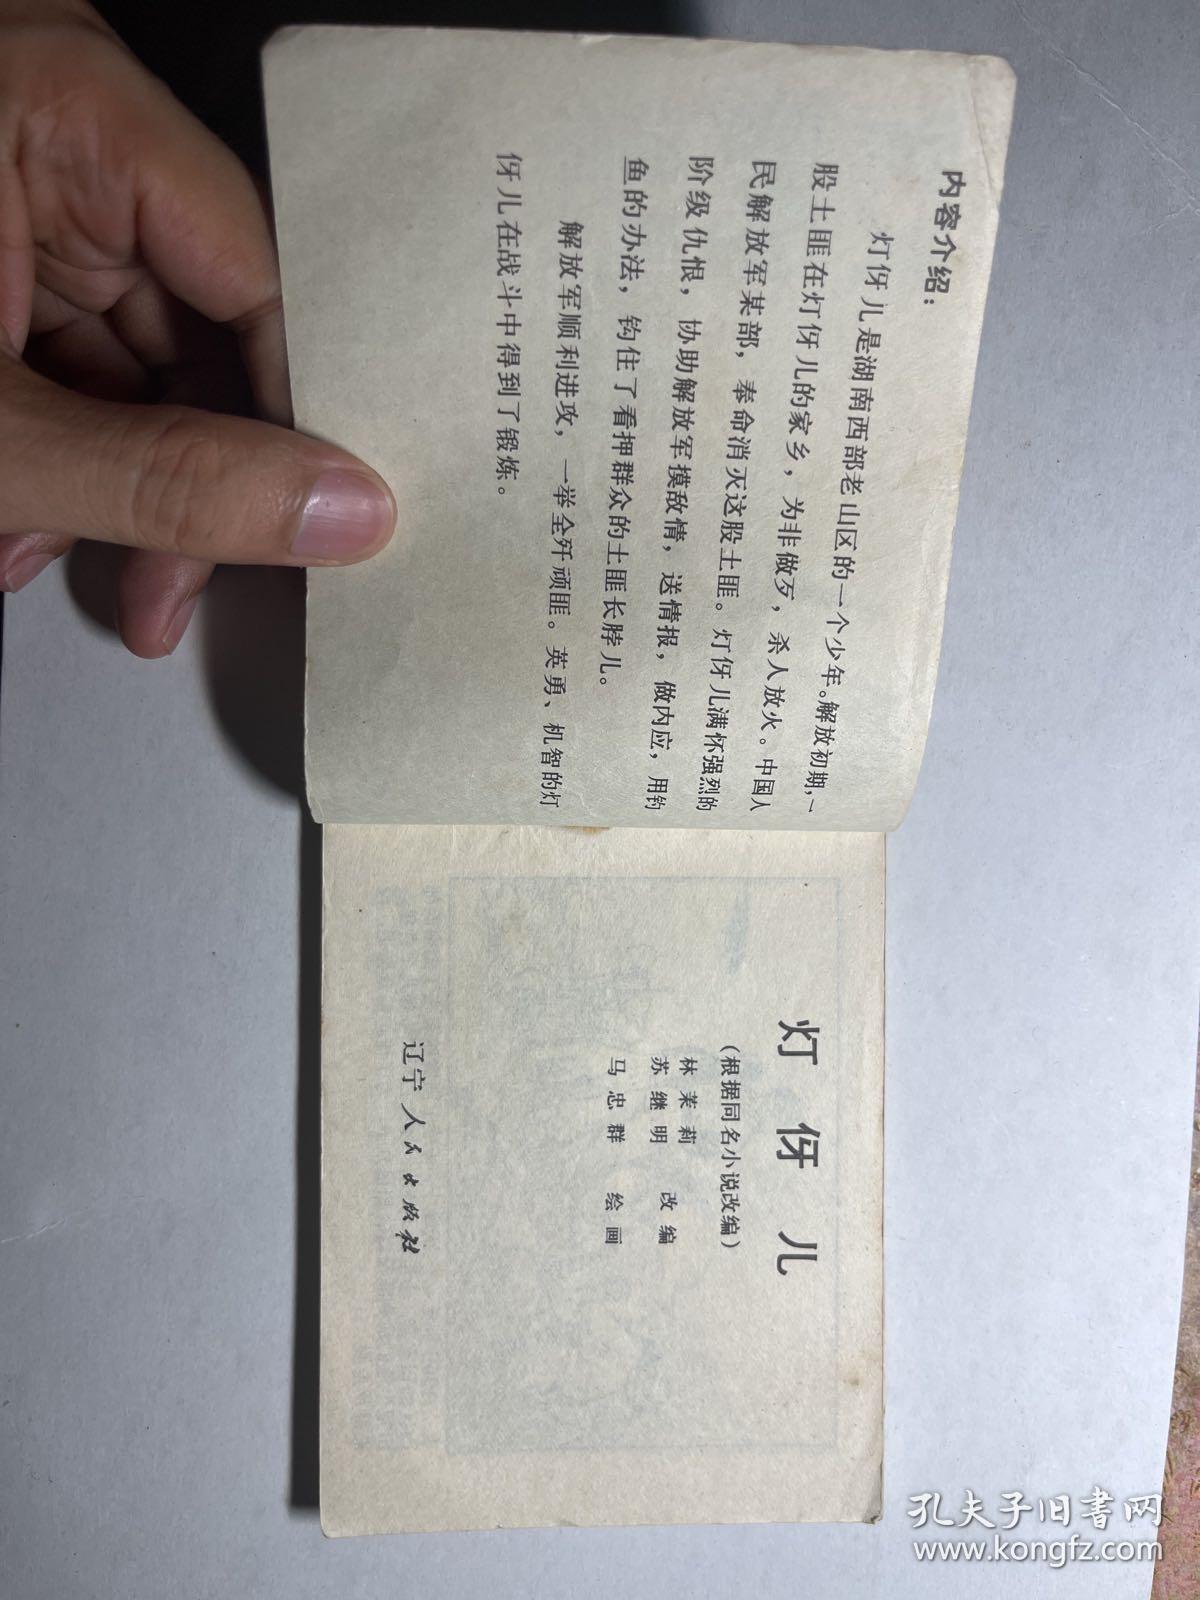 内容介绍：
灯伢儿是湖南西部老山区的一个少年。解放初期，一
股土匪在灯伢儿的家乡，为非做歹，杀人放火。中国人
民解放军某部，奉命消灭这股土匪。灯伢儿满怀强烈的
阶级仇恨，协助解放军摸敌情，送情报，做内应，用钓
鱼的办法，钩住了看押群众的土匪长脖儿。
解放军顺利进攻，一举全歼顽匪。英勇、机智的灯
伢儿在战斗中得到了锻炼。
灯伢儿
（根据同名小说改编）
林茉莉
苏继明 改编
马忠群 绘画
辽宁人民出版社
孔夫子旧书网
www.kongfz.com